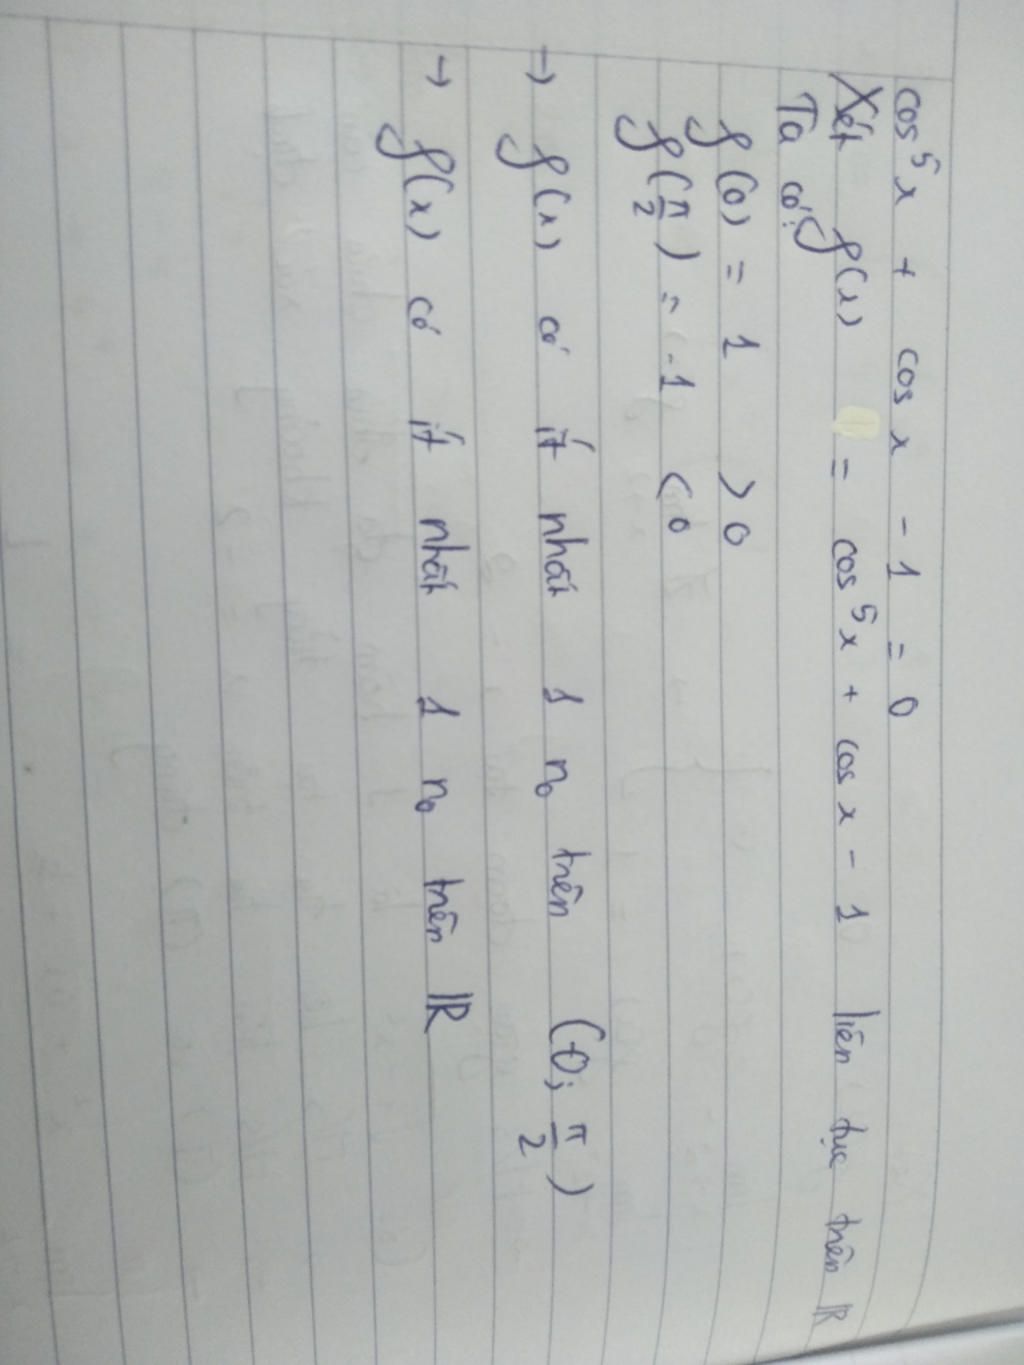 cos⁵x + cos x - 1 = 0
Xét f(x) = cos⁵x + cos x - 1 liên tục trên ℝ
Ta có:
f(0) = 1 > 0
f(π/2) = -1 < 0
→ f(x) có ít nhất 1 n₀ trên (0; π/2)
→ f(x) có ít nhất 1 n₀ trên ℝ